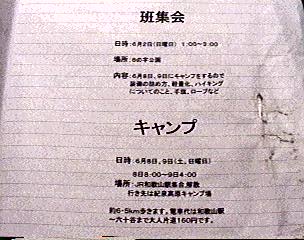 班集会
日時:6月2日(日曜日) 1:00~3:00
場所:8の字公園
内容:6月8日、9日にキャンプをするので
装備の詰め方、軽量化、ハイキング
についてのこと、手旗、ロープなど
キャンプ
日時:6月8日、9日(土、日曜日)
8日8:00~9日4:00
場所:JR和歌山駅集合、解散
行き先は紀泉高原キャンプ場
約6.5km歩きます。電車代は和歌山駅
~六十谷まで大人片道160円です。